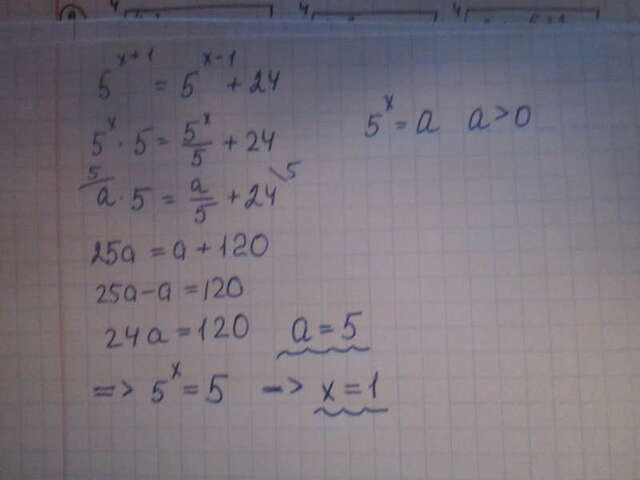 5^{x+1} = 5^{x-1} + 24
5^x · 5 = \frac{5^x}{5} + 24    5^x = a  a > 0
^{5/} a · 5 = \frac{a}{5} + 24 ^{\5}
25a = a + 120
25a - a = 120
24a = 120  a = 5
=> 5^x = 5  -> x = 1